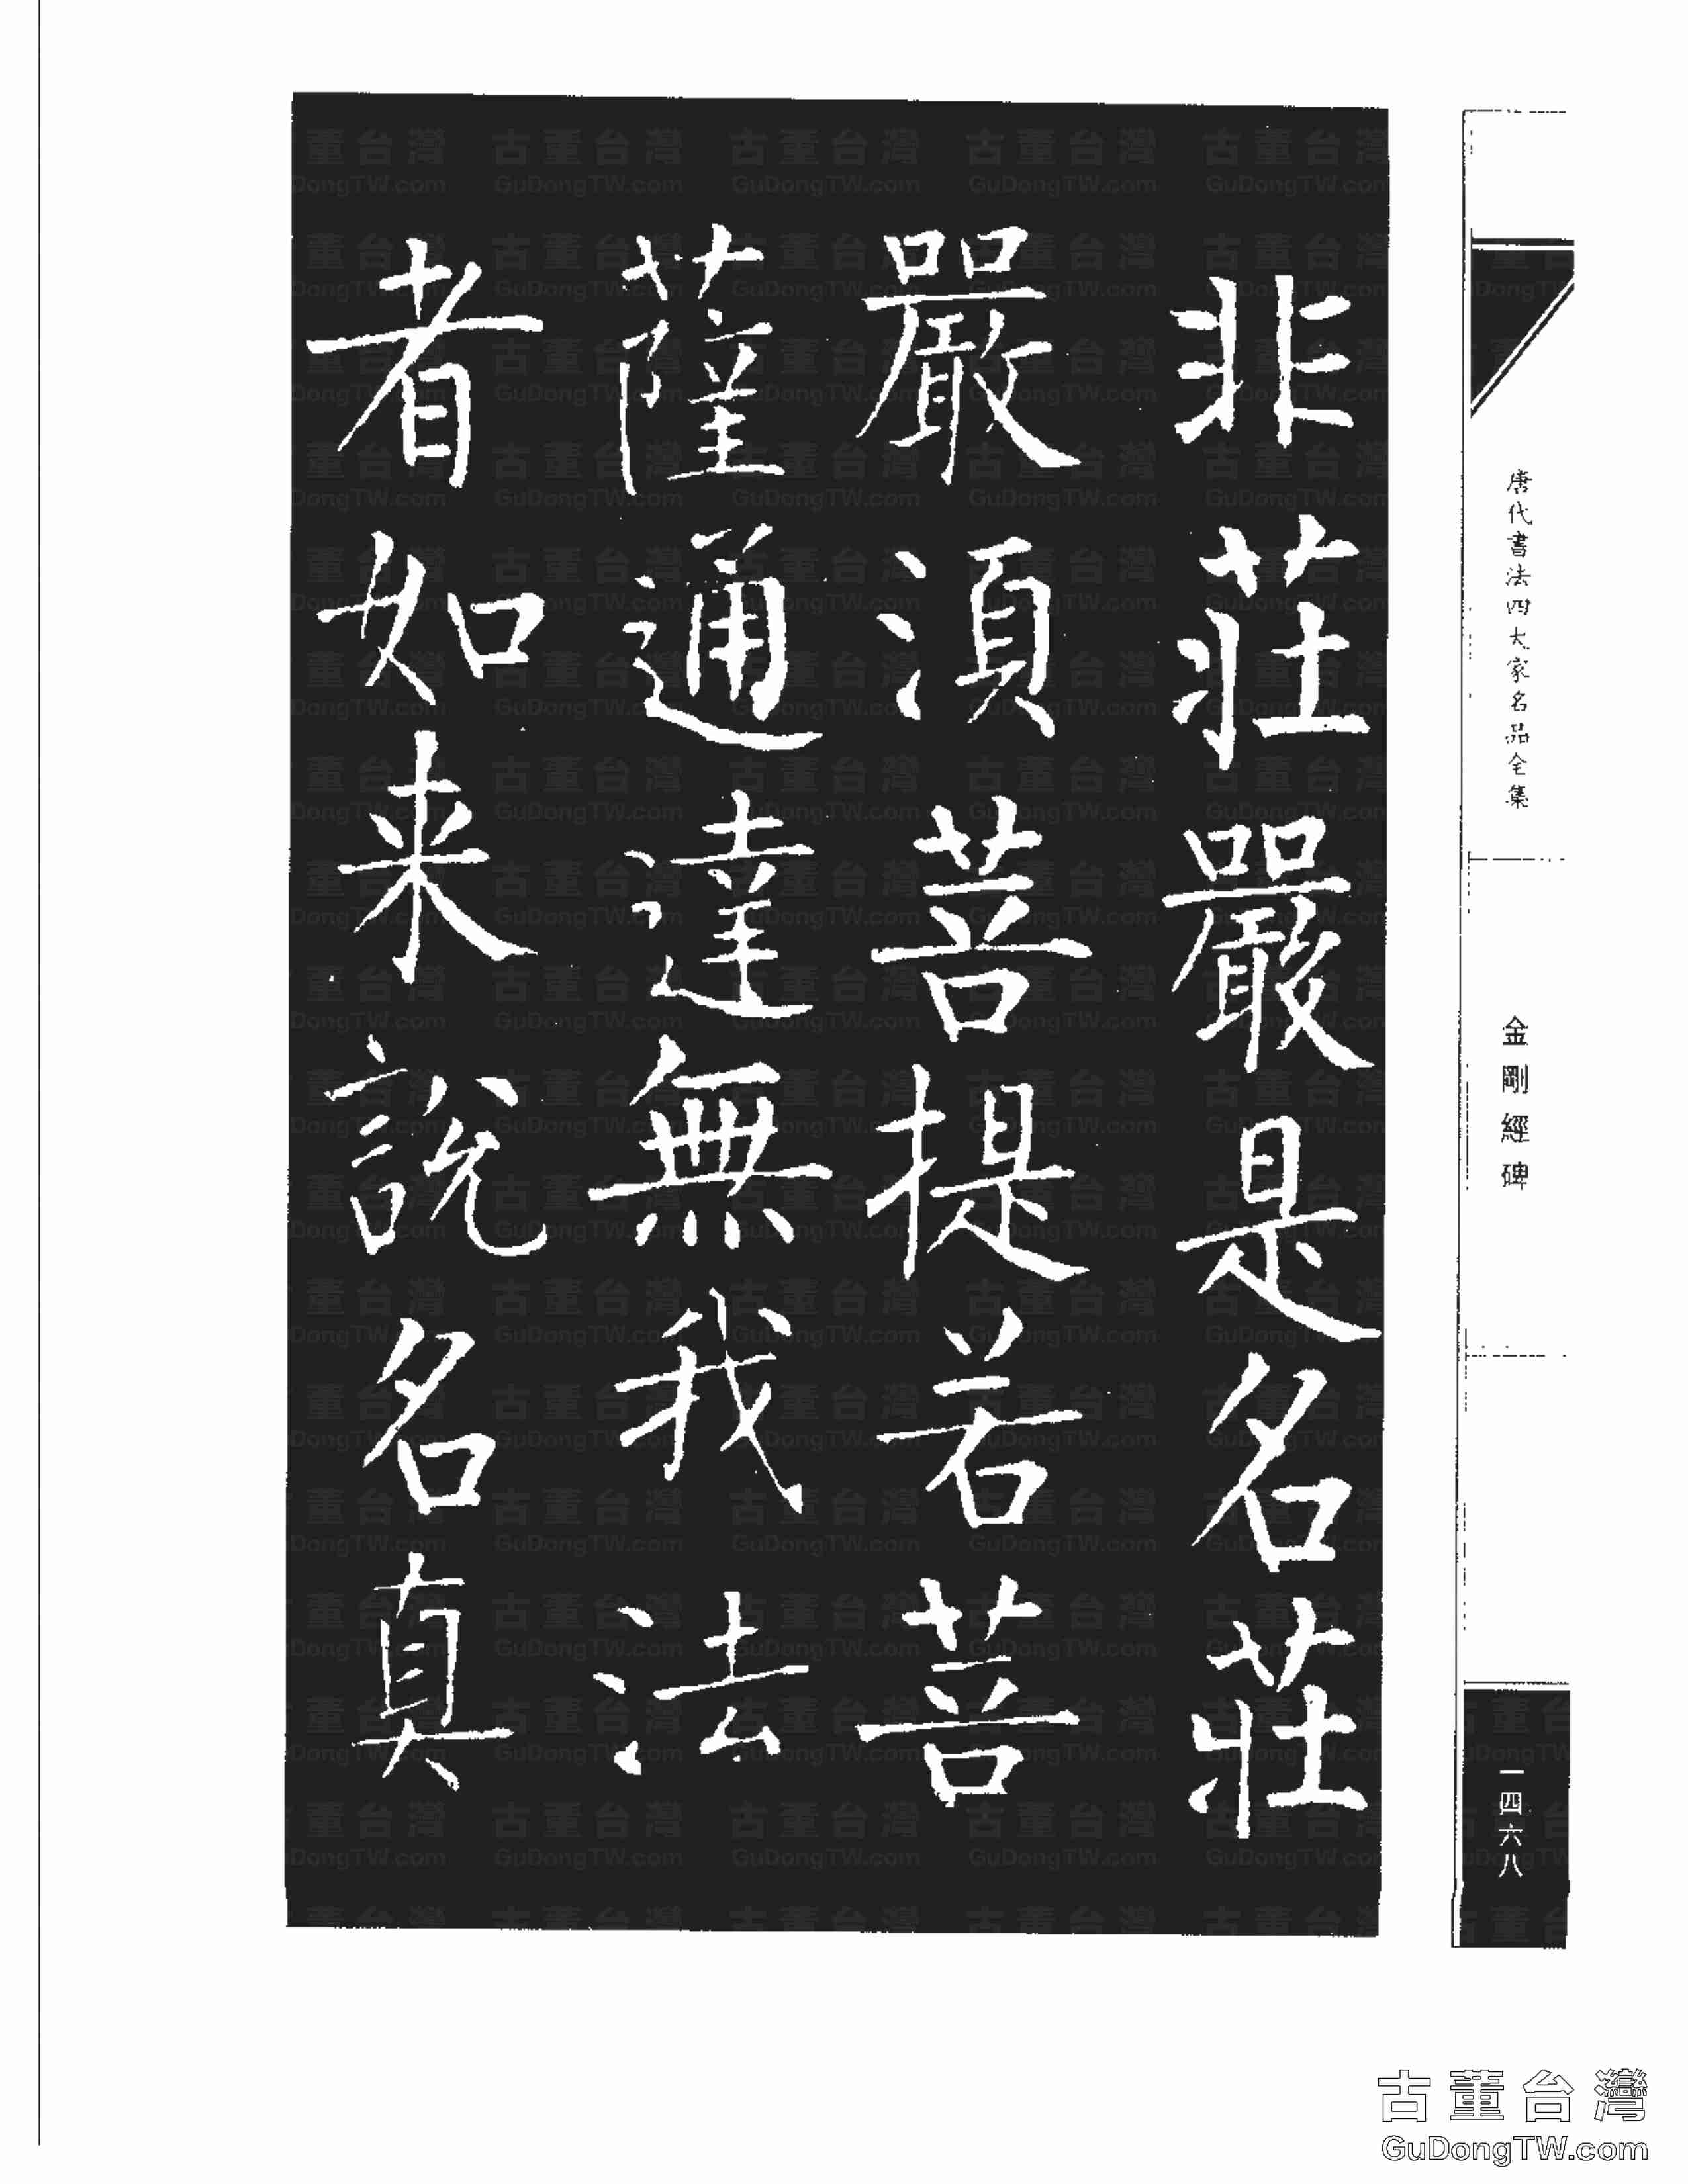 非莊嚴是名莊
嚴湏菩提若菩
薩通達無我法
者如来說名真
唐代書法四大家名品全集
金剛經碑
一四六八
古董台灣
GuDongTW.com